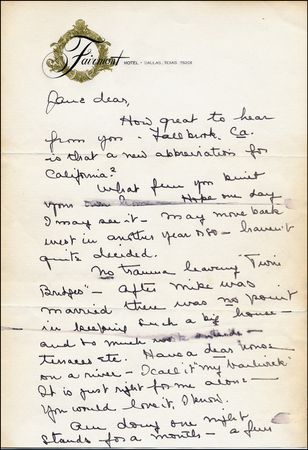 Fairmont HOTEL · DALLAS, TEXAS
Jane dear,
How great to hear
from you - Fallbrook, Ca.
is that a new abbreviation for
California?
What fun you built
your own Hope one day
I may see it - may move back
west in another year or so - haven't
quite decided.
No trauma leaving "Twin
Bridges" - after Mike was
married there was no point
in keeping such a big house -
and to much
terraces etc. Have a dear house
on a river - I call it "my
It is just right for me alone -
You would love it, I know.
Am doing one night
stands for a month - a few